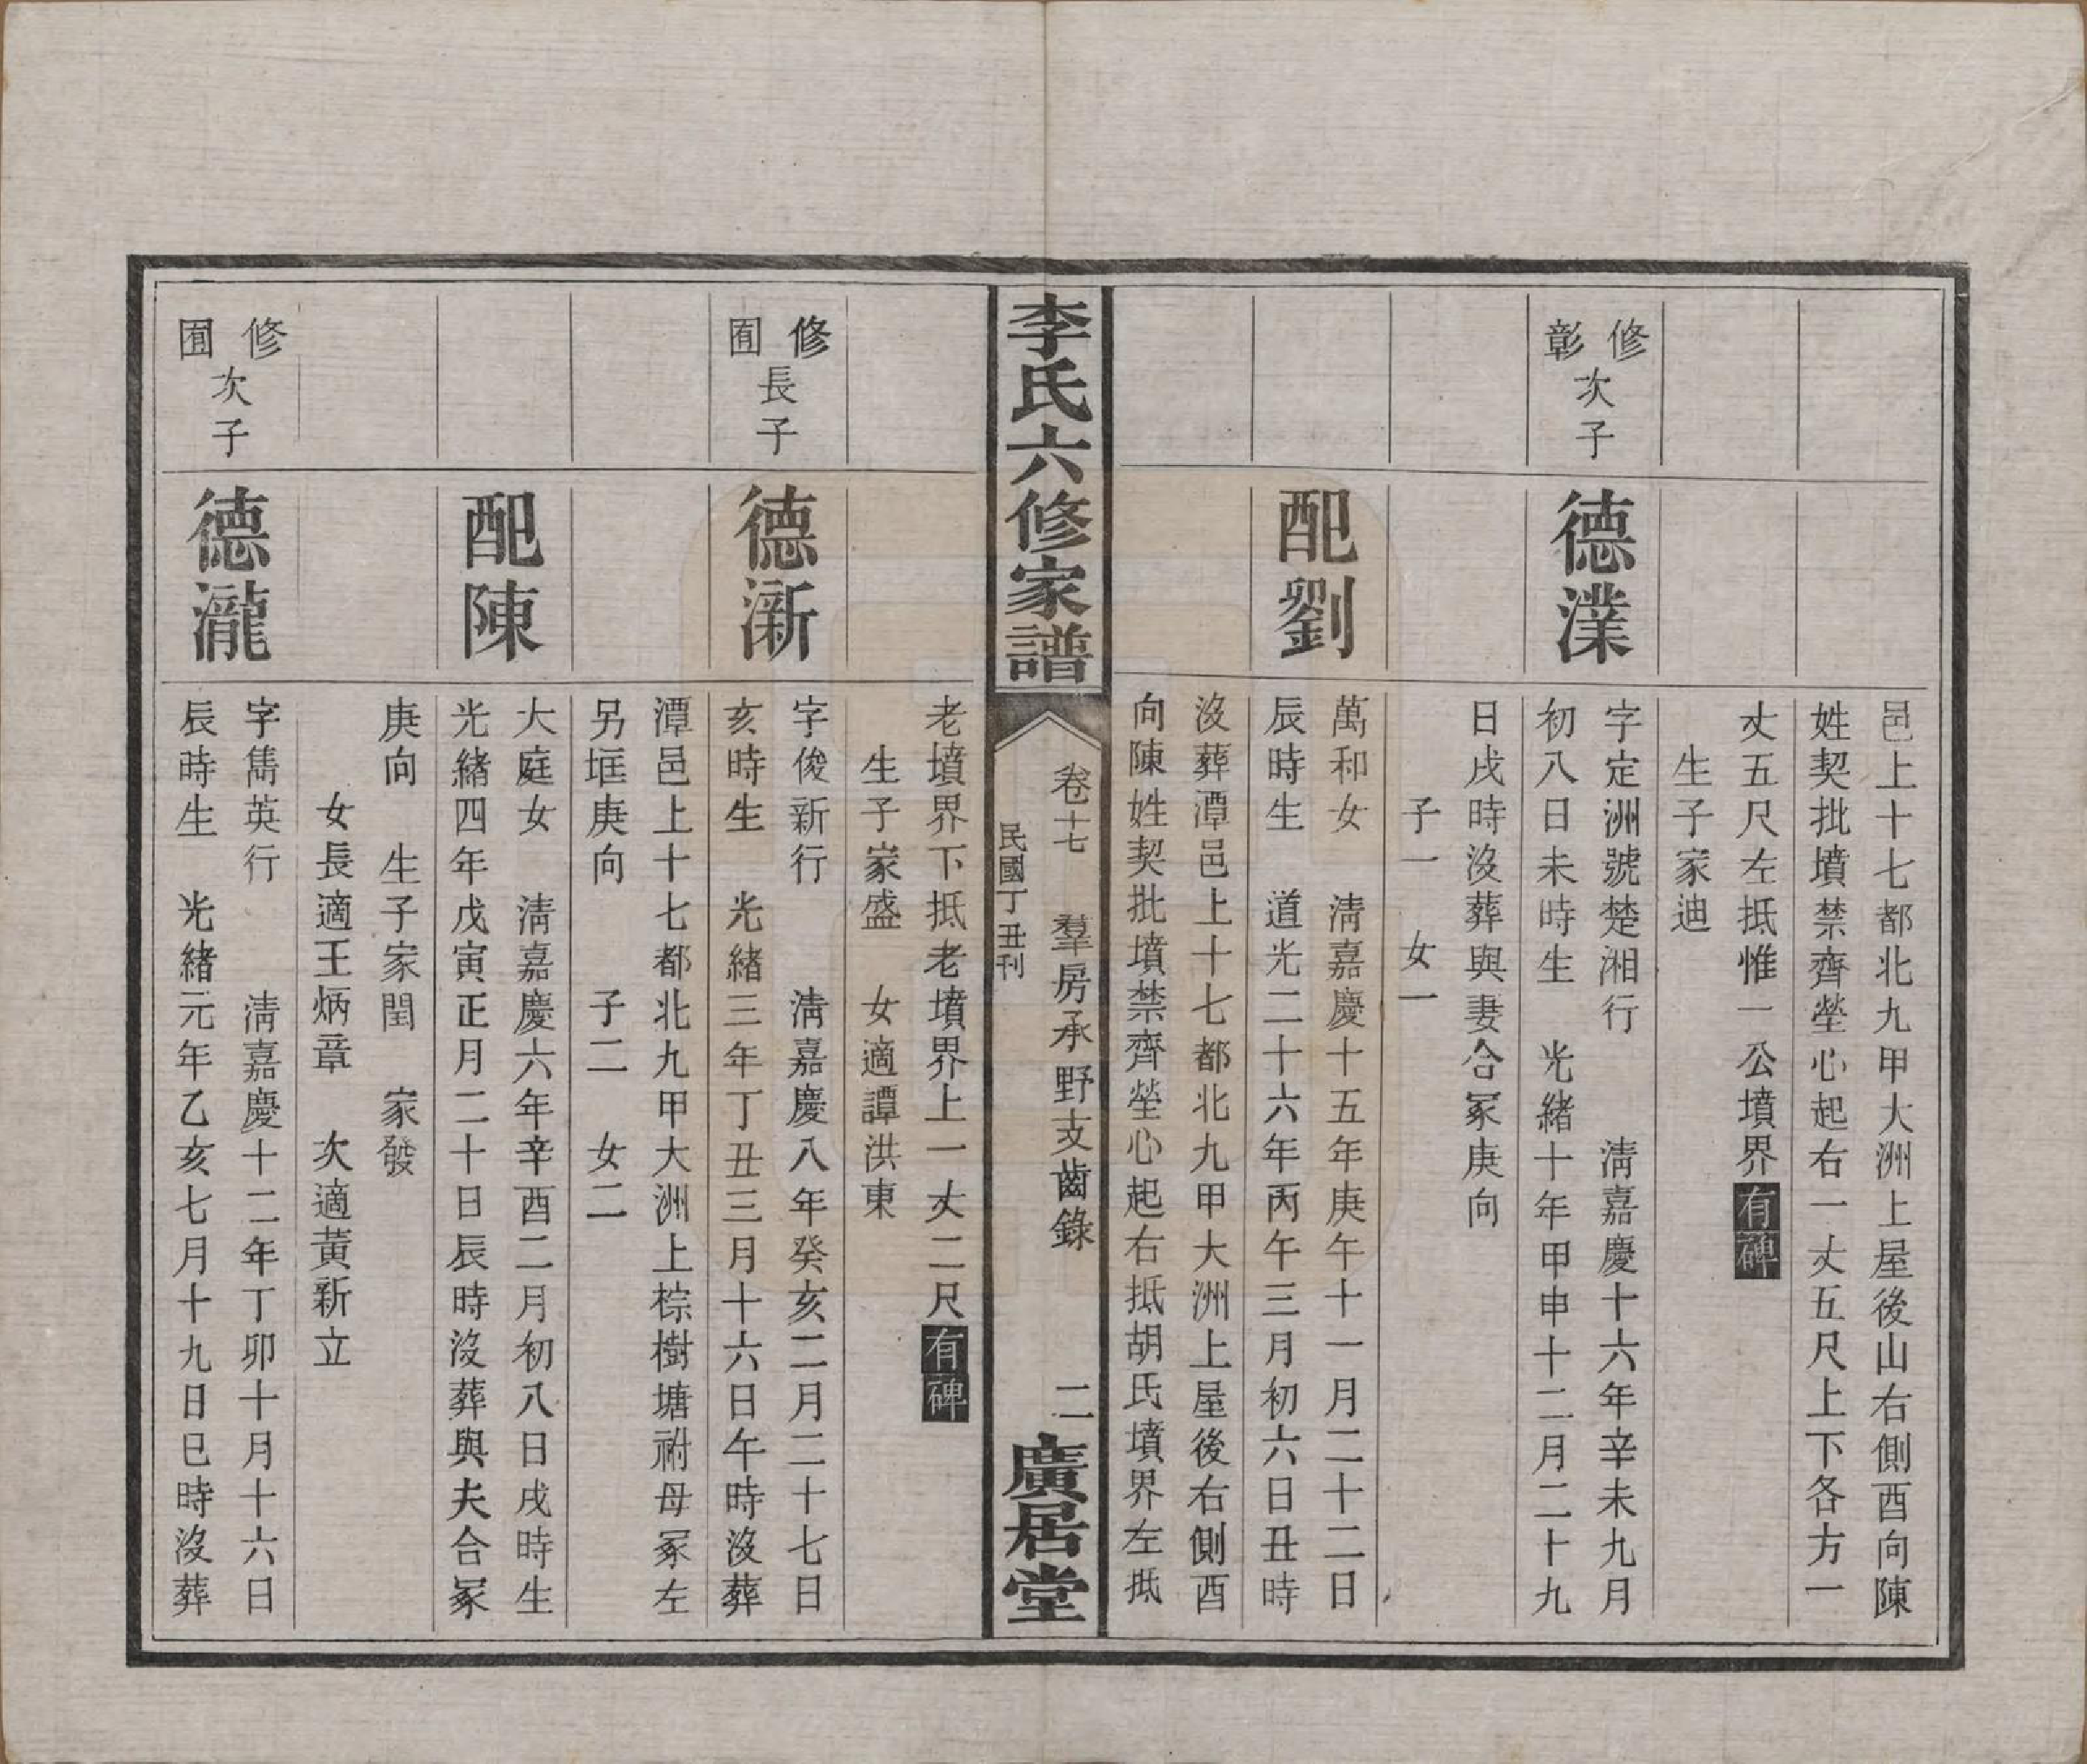 邑上十七都北九甲大洲上屋後山右側酉向陳
姓契批墳禁齊塋心起右一丈五尺上下各方一
丈五尺左抵惟一公墳界有碑
生子家迪
修彰次子
德濮
字定洲號楚湘行 淸嘉慶十六年辛未九月
初八日未時生 光緒十年甲申十二月二十九
日戌時沒葬與妻合冢庚向
子一 女一
配劉
萬和女 淸嘉慶十五年庚午十一月二十二日
辰時生 道光二十六年丙午三月初六日丑時
沒葬潭邑上十七都北九甲大洲上屋後右側酉
向陳姓契批墳禁齊塋心起右抵胡氏墳界左抵
李氏六修家譜
卷十七 羣房承野支齒錄 二
民國丁丑刊
廣居堂
老墳界下抵老墳界上一丈二尺有碑
生子家盛 女適譚洪東
修囿長子
德漸
字俊新行 淸嘉慶八年癸亥二月二十七日
亥時生 光緒三年丁丑三月十六日午時沒葬
潭邑上十七都北九甲大洲上棕樹塘祔母冢左
另垤庚向 子二 女二
配陳
大庭女 淸嘉慶六年辛酉二月初八日戌時生
光緒四年戊寅正月二十日辰時沒葬與夫合冢
庚向 生子家閏 家發
女長適王炳章 次適黃新立
修囿次子
德瀧
字雋英行 淸嘉慶十二年丁卯十月十六日
辰時生 光緒元年乙亥七月十九日巳時沒葬